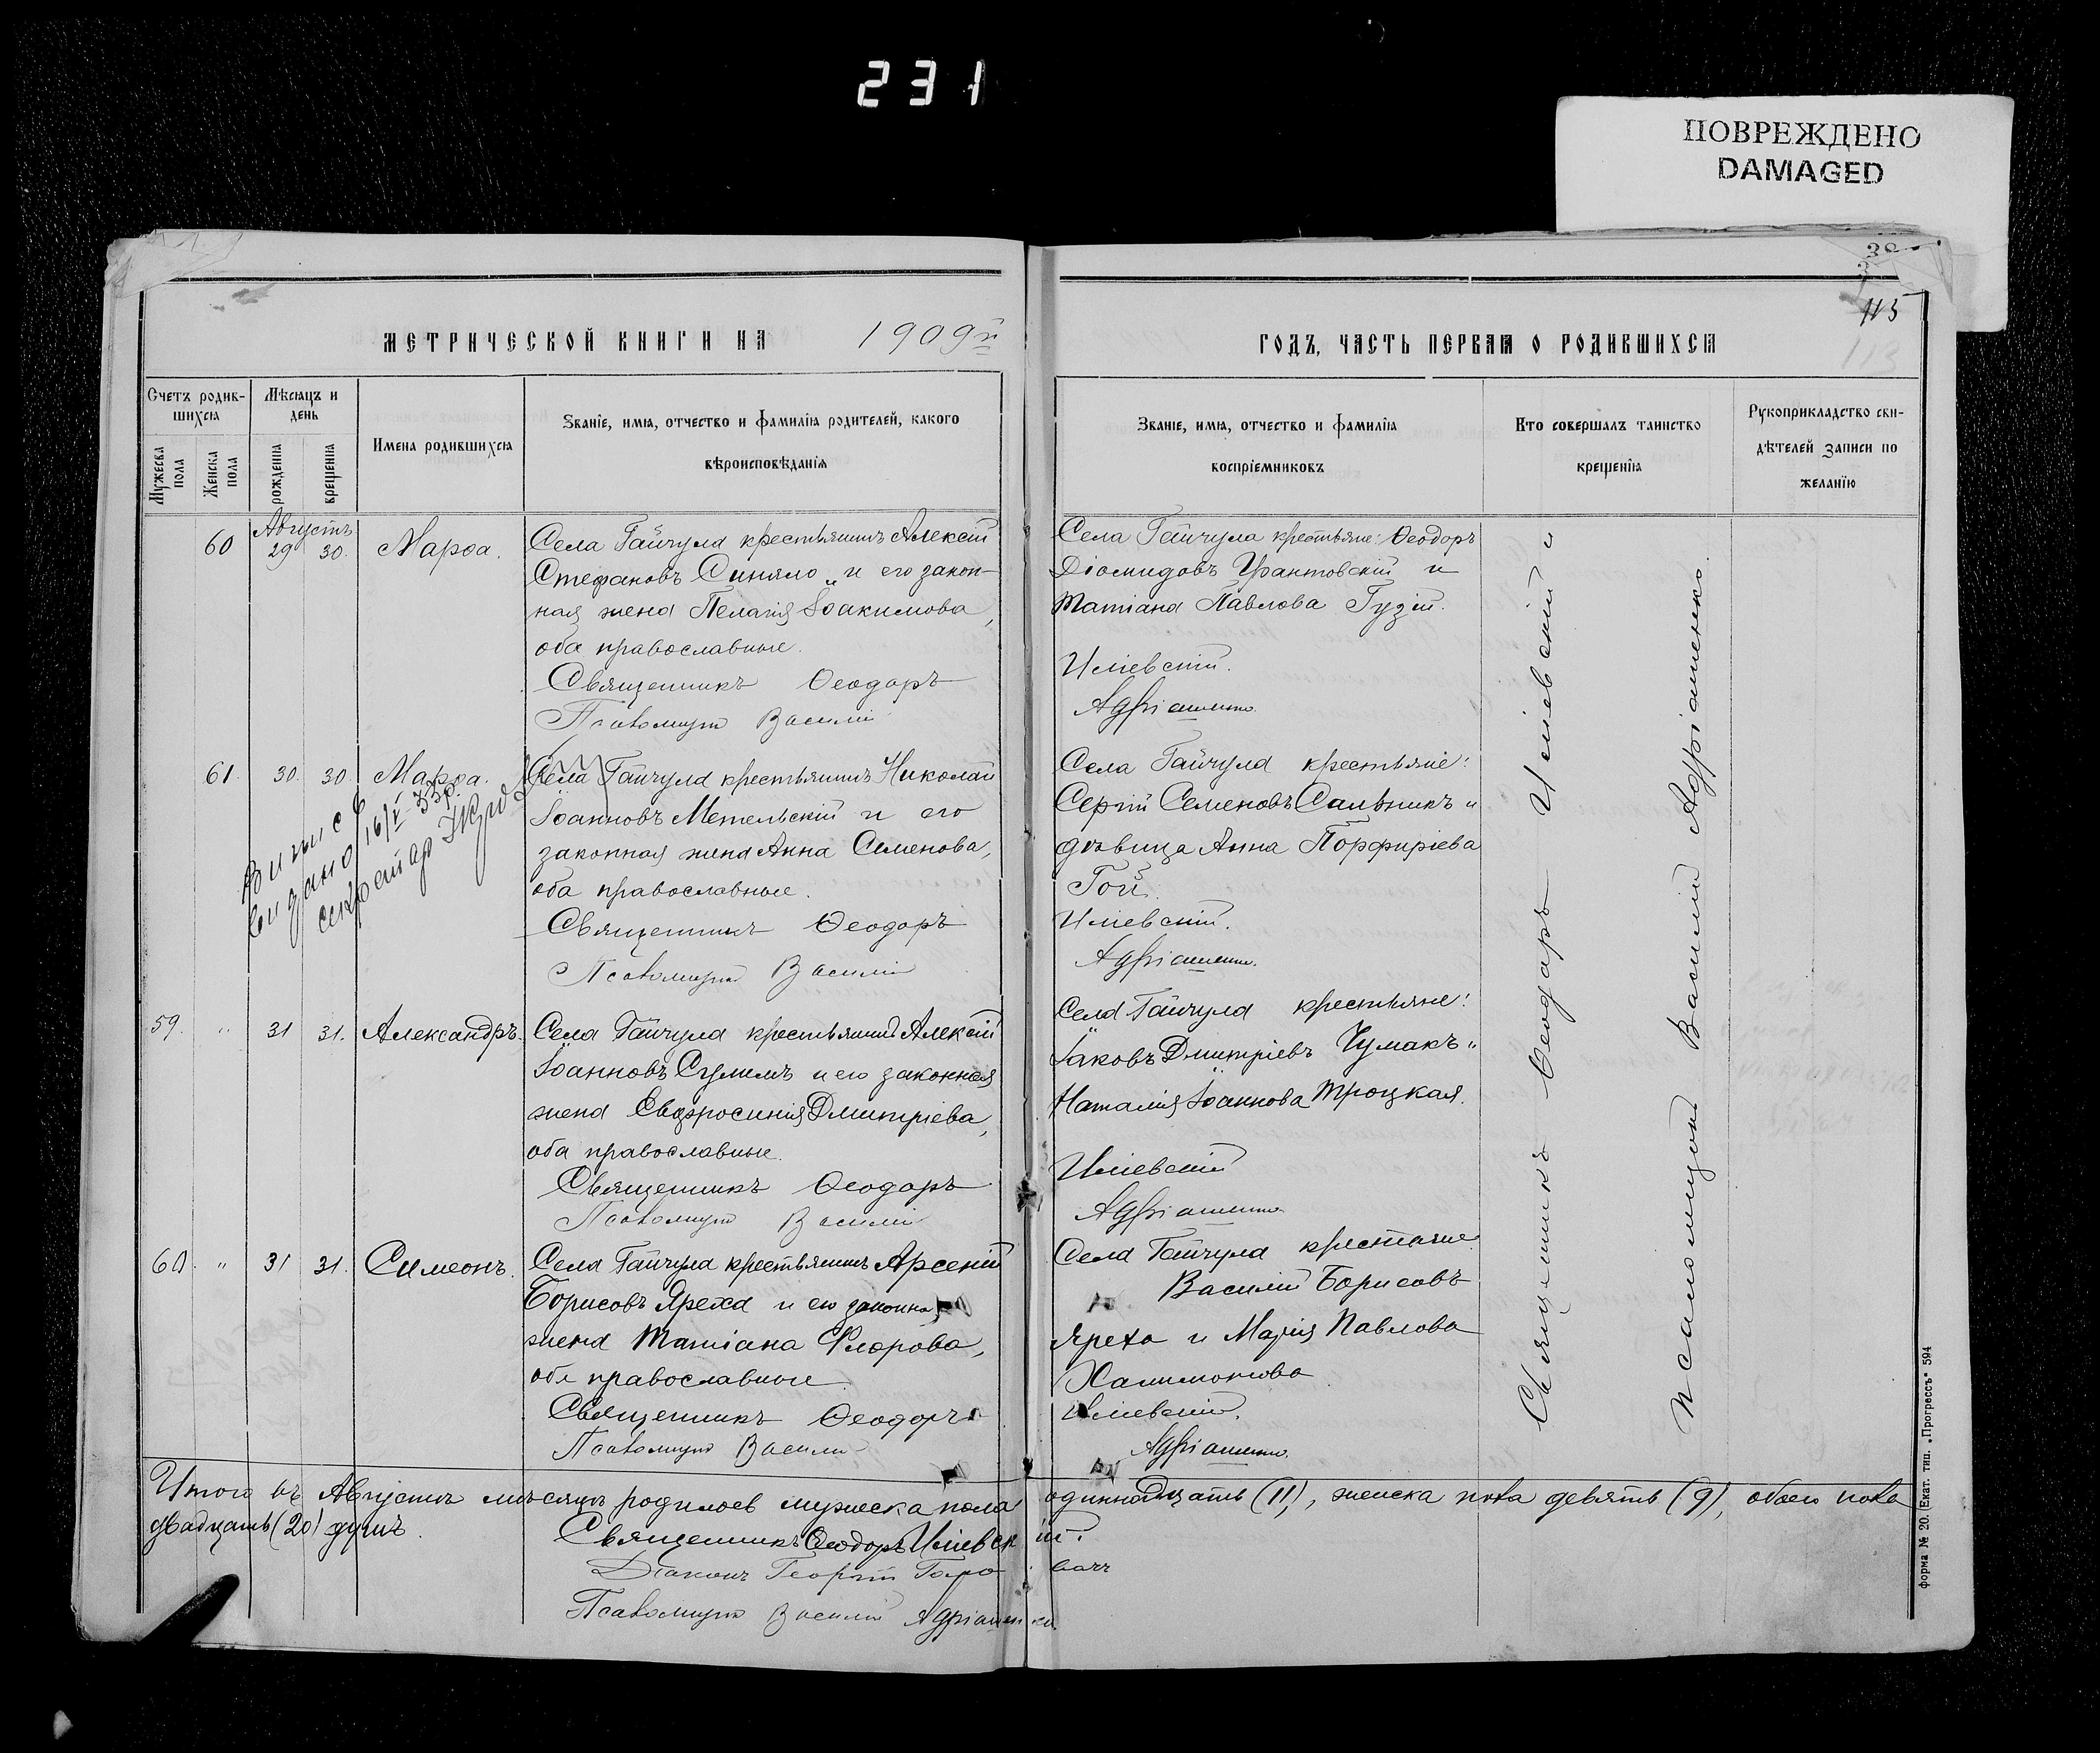 231
ПОВРЕЖДЕНО
DAMAGED
115
113
МЕТРИЧЕСКОЙ КНИГИ НА 1909й
ГОДЪ, ЧАСТЬ ПЕРВАЯ О РОДИВШИХСЯ
Счетъ родившихся
Мужеска пола
Женска пола
Мѣсяцъ и день
рожденія
крещенія
Имена родившихся
Званіе, имя, отчество и фамилія родителей, какого
вѣроисповѣданія
Званіе, имя, отчество и фамилія
воспріемниковъ
Кто совершалъ таинство
крещенія
Рукоприкладство сви-
дѣтелей записи по
желанію
Августъ
60 29 30. Марѳа.
Села Гайчула крестьянинъ Алексѣй
Стефановъ Синяло и его закон-
ная жена Пелагія Іоакимова,
оба православные.
Священникъ Ѳеодоръ
Псаломщикъ Василій
Села Гайчула крестьяне: Ѳеодоръ
Діомидовъ Урантовскій и
Татіана Павлова Гузій.
Иліевскій.
Адріаненко.
61. 30. 30. Марѳа.
Випись
видано 16/V 33р.
секретар
Села Гайчула крестьянинъ Николай
Іоанновъ Метельскій и его
законная жена Анна Семенова,
оба православные.
Священникъ Ѳеодоръ
Псаломщикъ Василій
Села Гайчула крестьяне:
Сергій Семеновъ Сальникъ и
дѣвица Анна Порфиріева
Гой.
Иліевскій.
Адріаненко.
59. " 31 31. Александръ.
Села Гайчула крестьянинъ Алексѣй
Іоанновъ Сулимъ и его законная
жена Евфросинія Дмитріева,
оба православные.
Священникъ Ѳеодоръ
Псаломщикъ Василій
Села Гайчула крестьяне:
Іаковъ Дмитріевъ Чумакъ и
Наталія Іоаннова Троцкая.
Иліевскій
Адріаненко
60 " 31 31. Симеонъ.
Села Гайчула крестьянинъ Арсеній
Борисовъ Яреха и его законная
жена Татіана Флорова,
оба православные.
Священникъ Ѳеодоръ
Псаломщикъ Василій
Села Гайчула крестьяне
Василій Борисовъ
Яреха и Марія Павлова
Халимонова
Иліевскій.
Адріаненко.
Священникъ Ѳеодоръ Иліевскій и
псаломщикъ Василій Адріаненко.
Итого въ Августѣ мѣсяцѣ родилось мужеска пола одиннадцать (11), женска пола девять (9), обоего пола
двадцать (20) душъ.
Священникъ Ѳеодоръ Иліевскій.
Діаконъ Георгій
Псаломщикъ Василій Адріаненко.
форма № 20. (Екат. тип. „Прогрессъ" 594